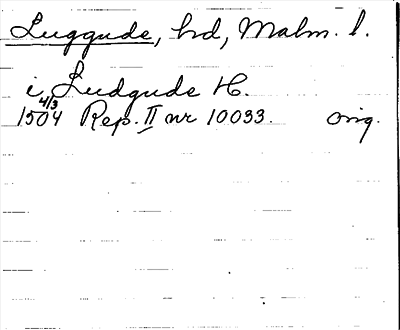 Luggude, hd, Malm. l.
i Ludgude H.
4/3
1504 Rep. II nr 10033. orig.